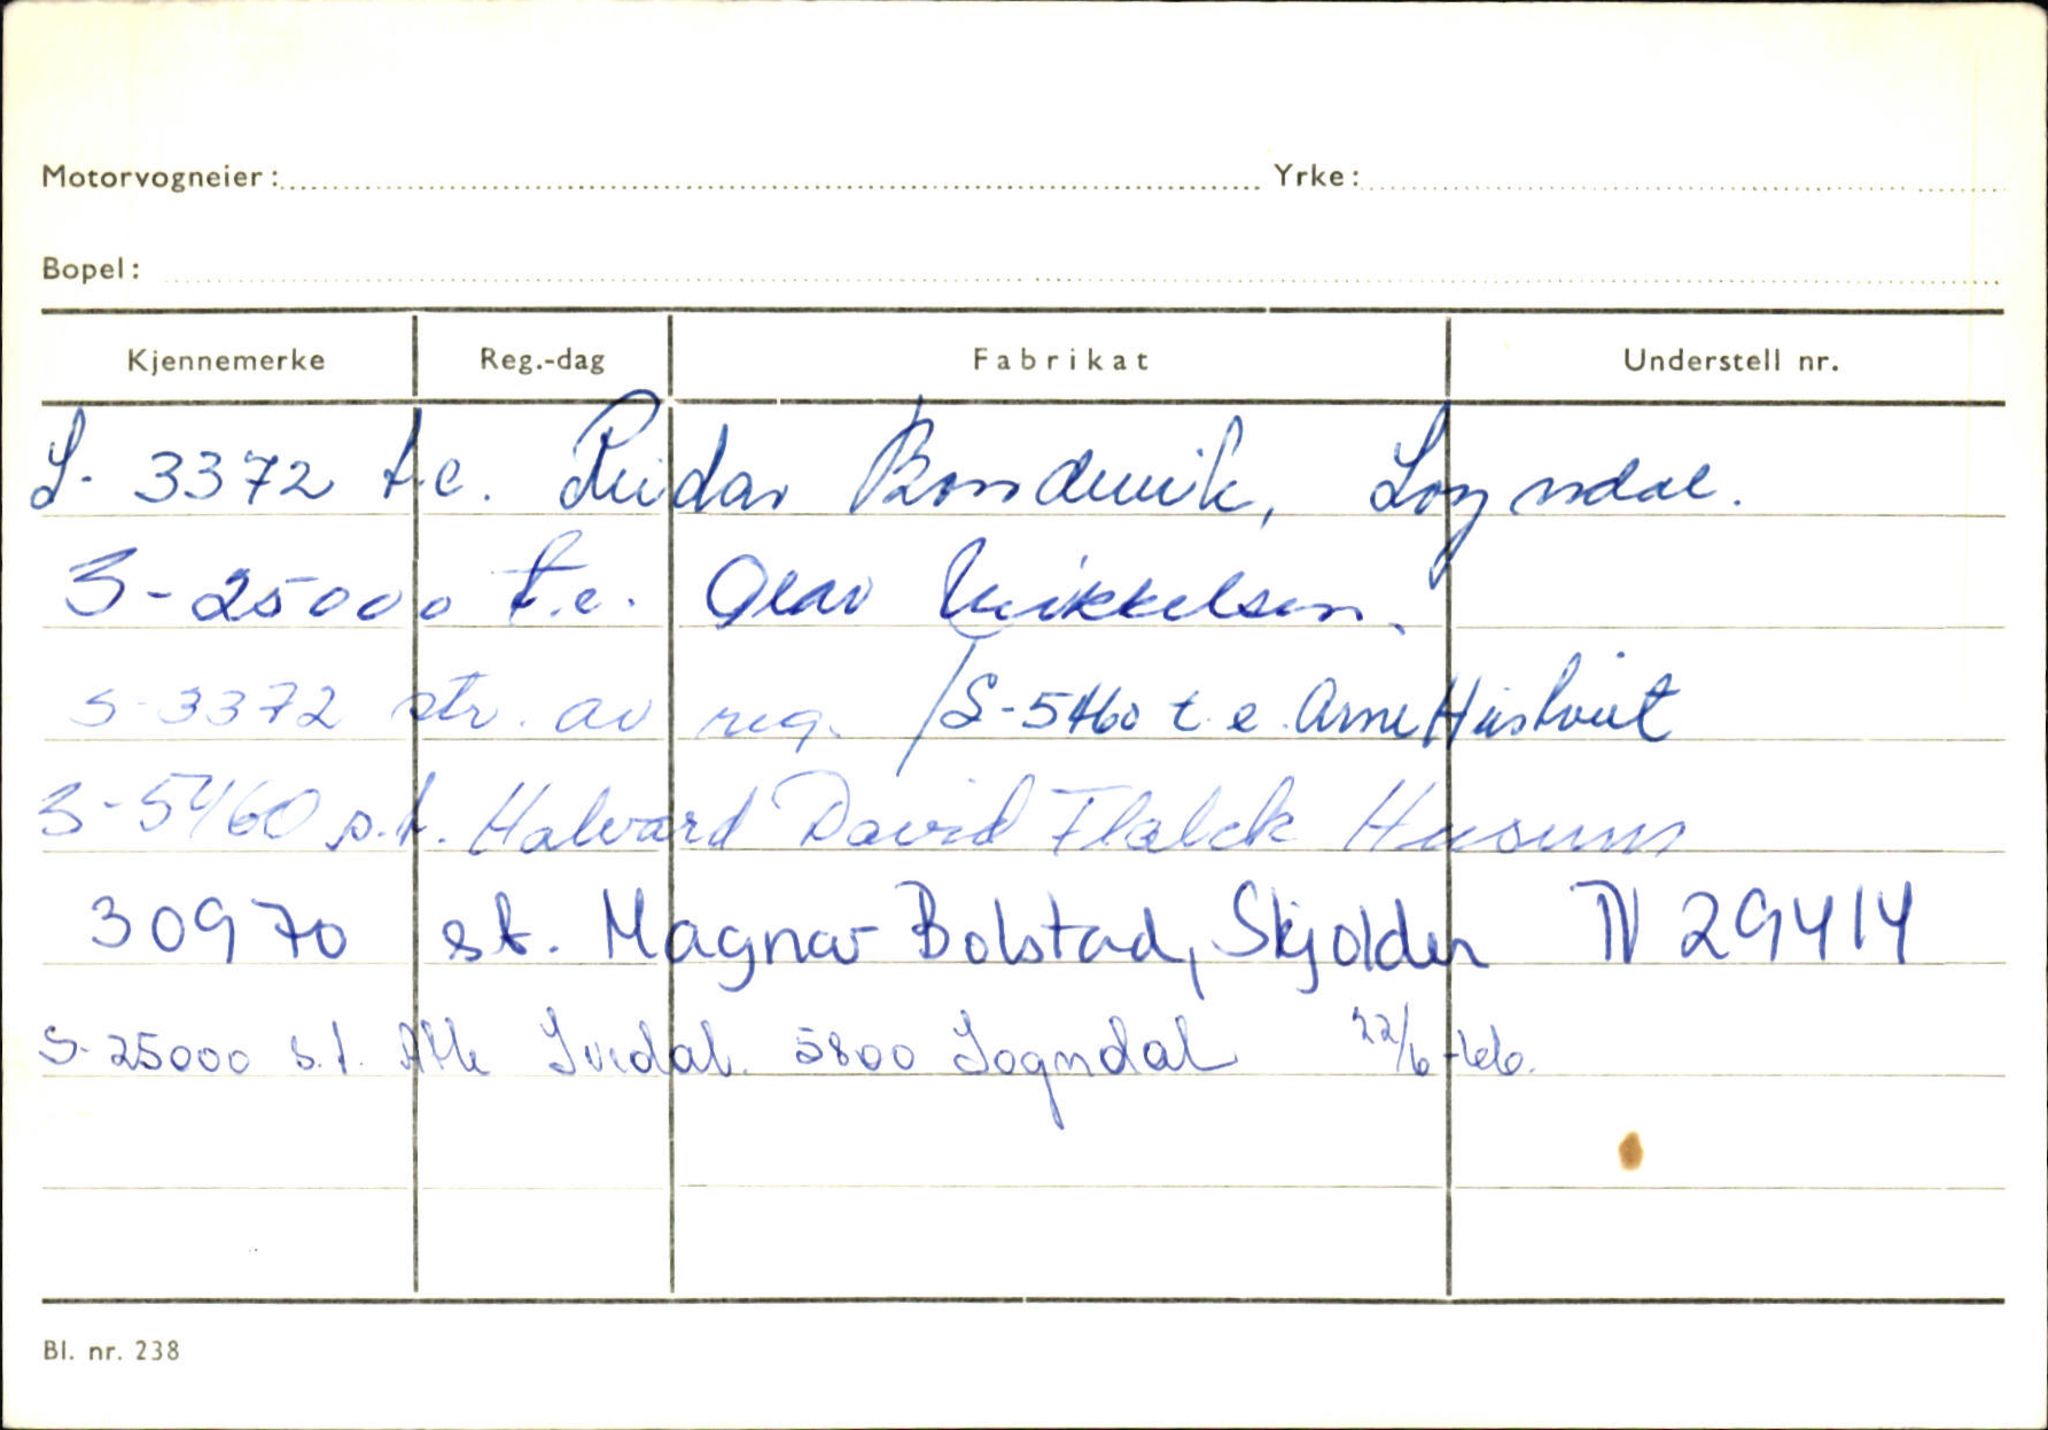 Motorvogneier: Yrke:
Bopel:
Kjennemerke Reg.-dag Fabrikat Understell nr.
S. 3372 t.e. Reidar Bondevik, Sogndal.
S-25000 t.e. Olav Mikkelsen.
S-3372 str. av reg. / S-5460 t.e. Arne Hustveit
S-5460 s.t. Halvard David Flalck Husum
30970 st. Magnar Bolstad, Skjolden TV 29414
S-25000 s.t. Atle Svedal. 5800 Sogndal 22/6-66.
Bl. nr. 238